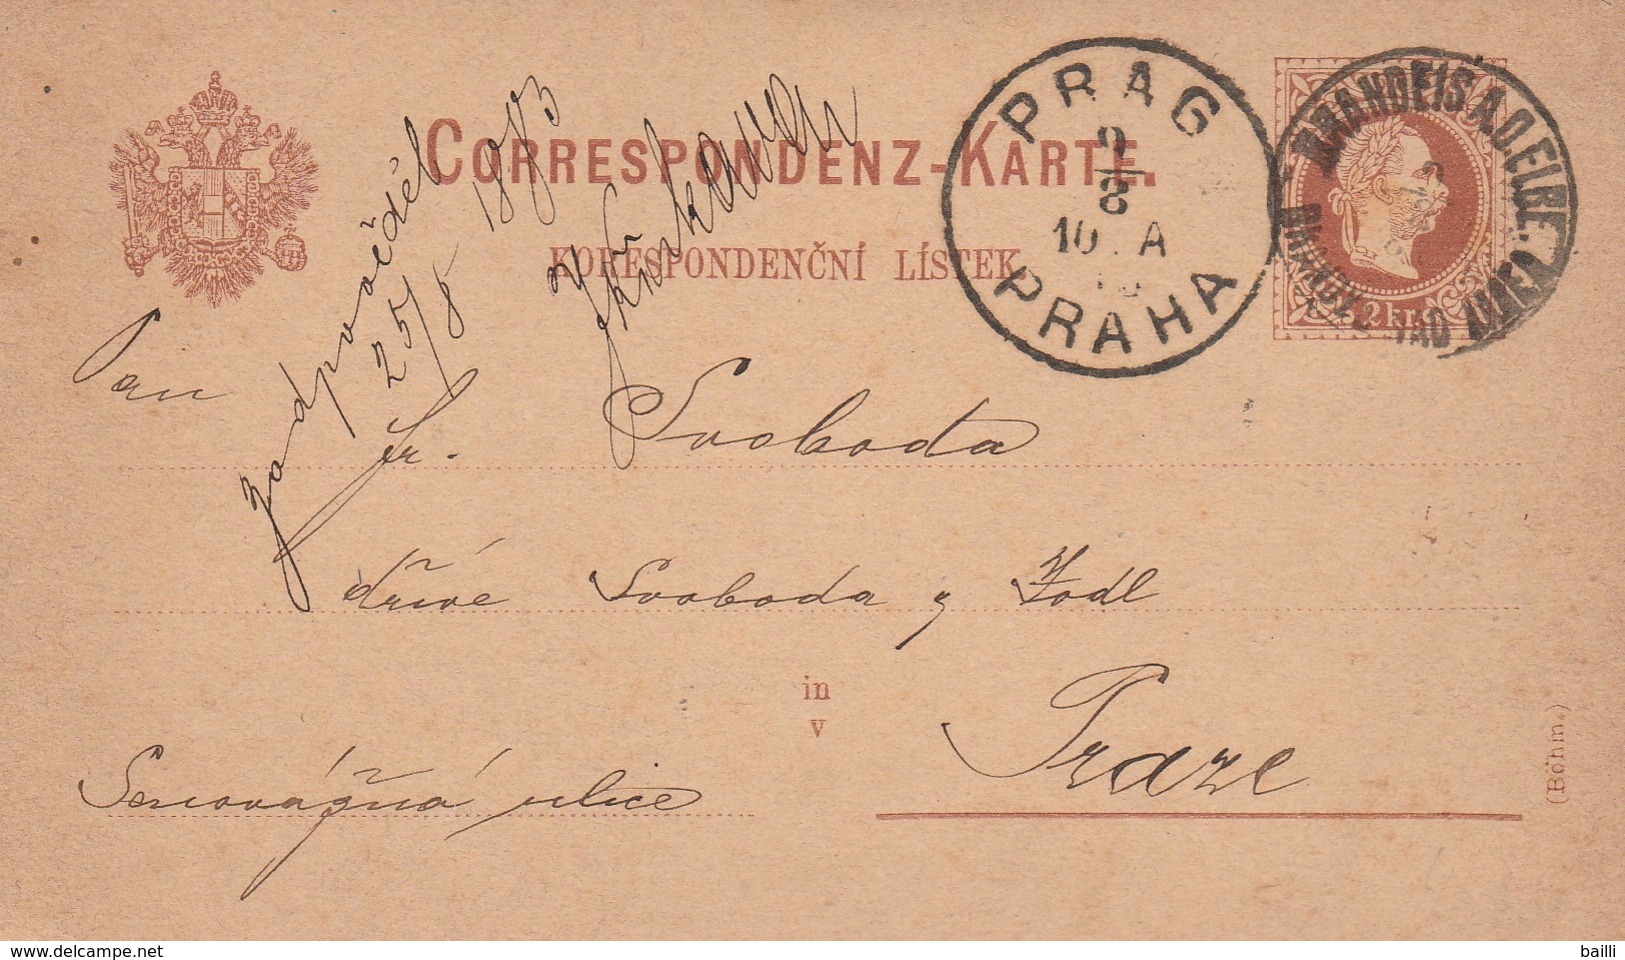 CORRESPONDENZ-KARTE.
KORESPONDENČNÍ LÍSTEK
PRAG
9/8
10 A
PRAHA
BRANDEIS A.D. ELBE.
2 kr.
zodpověděl
25/8 1883
Pan
Fr. Svoboda
dříve Svoboda y Zodl
in
v
Praze
Senovážná ulice
(Böhm.)
delcampe.net
bailli